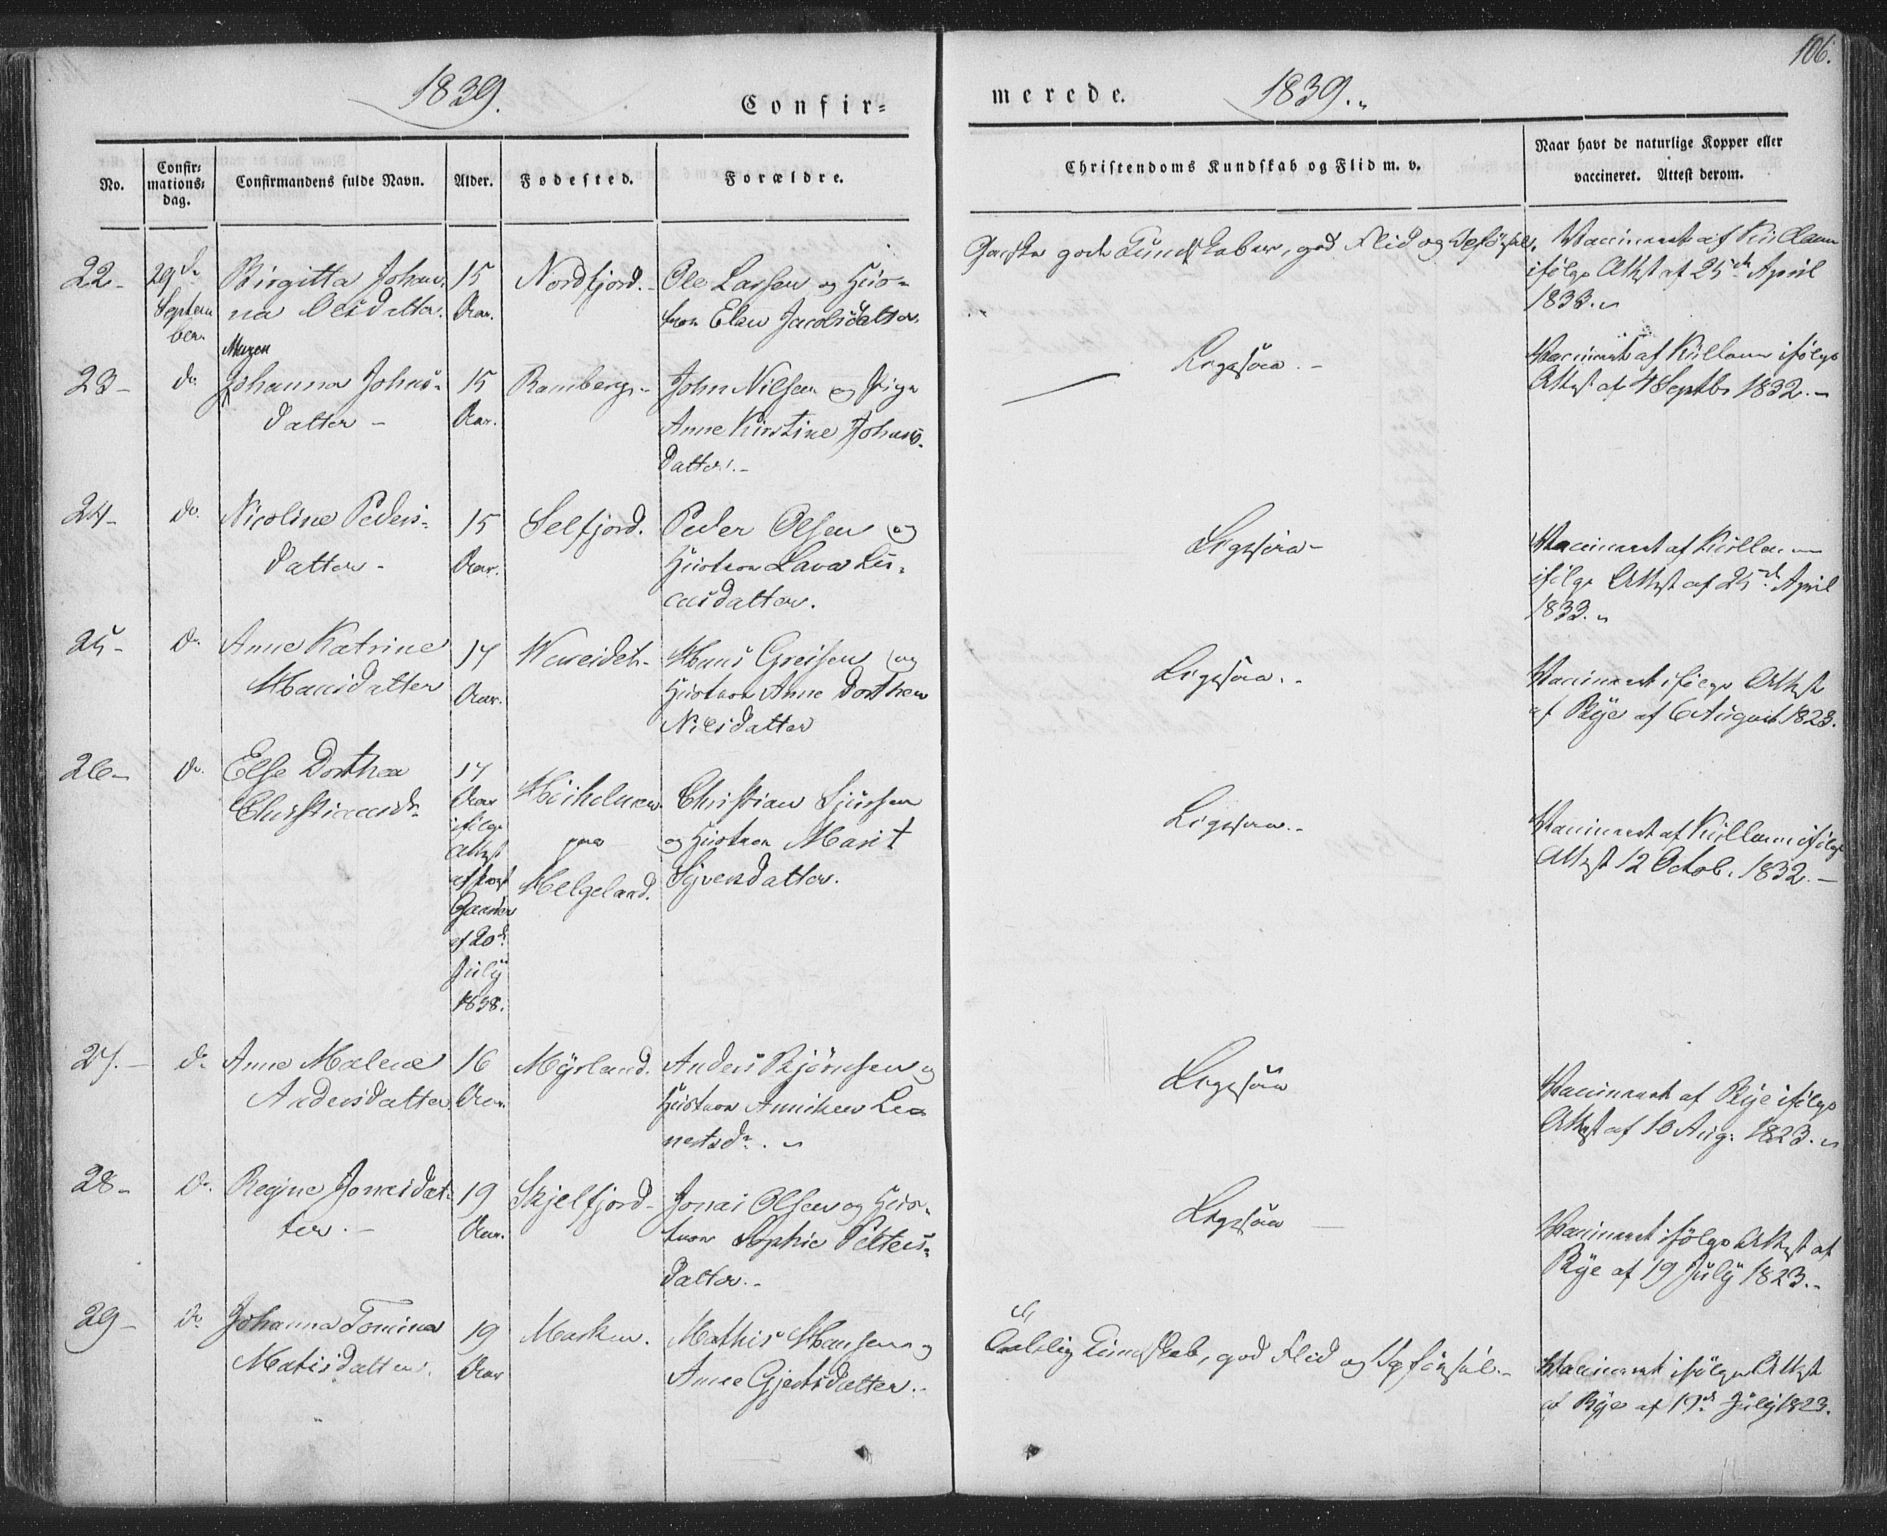 106.
1839.
Confir=
merede.
1839.
No.
Confir=
mations=
dag.
Confirmandens fulde Navn.
Alder.
Fodested.
Forældre.
Christendoms Kundskab og Flid m. v.
Naar havt de naturlige Kopper eller
vaccineret. Attest derom.
22-
29de
Septem
ber
Birgitta Johan-
na Olsdatter.
15
Aar.
Nordfjord.
Ole Larsen og Hus=
troe Elen Jacobsdatter.
Ganske gode Kundskaber, god Flid og Opførsel.
Vaccineret af Küllam
ifølge Attest af 25de April
1833.
23-
do
Maren
Johanna Johns=
datter -
15
Aar.
Ramberg.-
John Nilsen og Pige
Anne Kirstine Johans=
datter.-
Ligesaa.-
Vaccineret af Küllam ifølge
Attest af 4 Septbr 1832.-
24-
do.
Nicoline Peders=
datter-
15
Aar.
Selfjord.
Peder Olsen og
Hustroe Lava Lu=
casdatter.
Ligesaa-
Vaccineret af Küllam
ifølge Attest af 25de April
1833.
25-
do
Anne Katrine
Hansdatter
17
Aar.
Wareidet-
Hans Greisen og
Hustroe Anne Dorthea
Nilsdatter
Ligesaa.-
Vaccineret ifølge Attest
af Rye af 6 August 1823.
26-
do.
Else Dorthea
Christiansdr
17
Aar
ifølge
Attest
af
af 20de
July
1838.
Høiholmen
paa
Helgeland.
Christian Sjursen
og Hustroe Marit
Syversdatter.
Ligesaa.-
Vaccineret af Küllam ifølge
Attest 12 Octob. 1832.-
27.-
do
Anne Malene
Andersdatter
16
Aar.
Myrland.
Anders Bjørnsen og
Hustroe Anniken Lea
nertsdr.
Ligesaa
Vaccineret af Rye ifølge
Attest af 10 Aug: 1823.
28-
do.
Regine Jonasdat=
ter.-
19
Aar.
Skjelfjord-
Jonas Olsen og Hus=
troe Sophie Peters=
datter.-
Ligesaa
Vaccineret ifølge Attest af
Rye af 19 July 1823.-
29-
do
Johanna Tomina
Matisdatter.
19
Aar
Marken.
Mathis Hansen og
Anne Gjertsdatter.-
Kundskab, god Flid og Opførsel.-
Vaccineret ifølge Attest
af Rye af 19de July 1823.